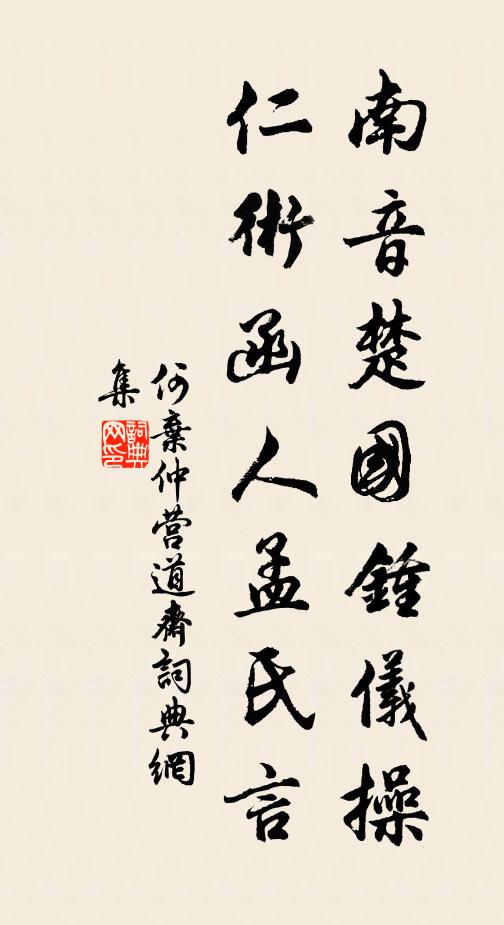 南音楚國鍾儀操
仁術函人孟氏言
何棄仲营道齋詞典網
集
詞典网印